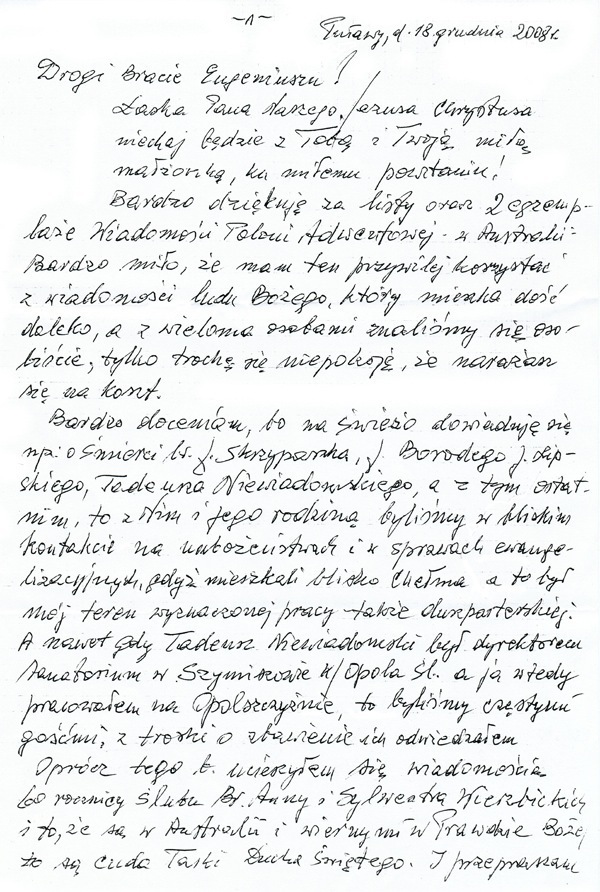 -1-
Puławy, d. 18 grudnia 2008 r.
Drogi Bracie Eugeniuszu!
Łaska Pana Naszego Jezusa Chrystusa
niechaj będzie z Tobą i Twoją miłą
małżonką, ku miłemu powitaniu!
Bardzo dziękuję za listy oraz 2 egzemp-
laże Wiadomości Poloni Adwentowej - w Australii -
Bardzo miło, że mam ten przywilej korzystać
z wiadomości ludu Bożego, który mieszka dość
daleko, a z wieloma osobami znaliśmy się oso-
biście, tylko trochę się niepokoję, że narażasz
się na koszt.
Bardzo doceniam, bo na świeżo dowiaduję się
np. o śmierci br. J. Skrzypaszka, J. Borodego J. Lip-
skiego, Tadeusza Niewiadomskiego, a z tym ostat-
nim, to z Nim i jego rodziną byliśmy w bliskim
kontakcie na nabożeństwach i w sprawach ewange-
lizacyjnych, gdyż mieszkali blisko Chełma a to był
mój teren wyznaczonej pracy także duszpasterskiej.
A nawet gdy Tadeusz Niewiadomski był dyrektorem
sanatorium w Szymiszowie k/Opola Śl. a ja wtedy
pracowałem na Opolszczyźnie, to byliśmy częstymi
gośćmi, z troski o zbawienie ich odwiedzałem
Oprócz tego b. ucieszyłem się wiadomością
60 rocznicy ślubu Br. Anny i Sylwestra Wierzbickich
i to, że są w Australii i wiernymi w Prawdzie Bożej
to są cuda Łaski Ducha Świętego. I przepraszam